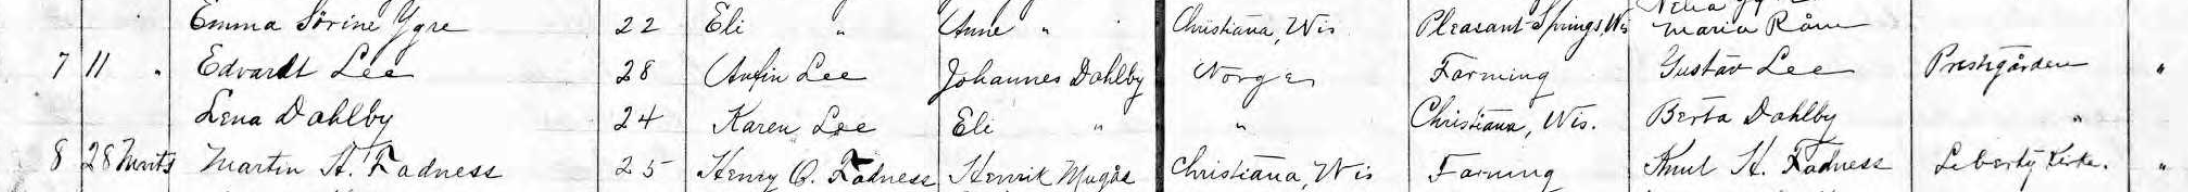 Emma Sörine Ygre 22 Eli " Anne " Christiana, Wis Pleasant Springs, Wis Maria Råm
7 11 " Edvardt Lee 28 Anfin Lee Johannes Dahlby Norge Farming Gustav Lee Prestegården "
Lena Dahlby 24 Karen Lee Eli " " Christiana, Wis. Berta Dahlby "
8 28 Marts Martin H. Fadness 25 Henry O. Fadness Henrik Mugås Christiana, Wis Farming Knut H. Fadness Liberty Kirke. "